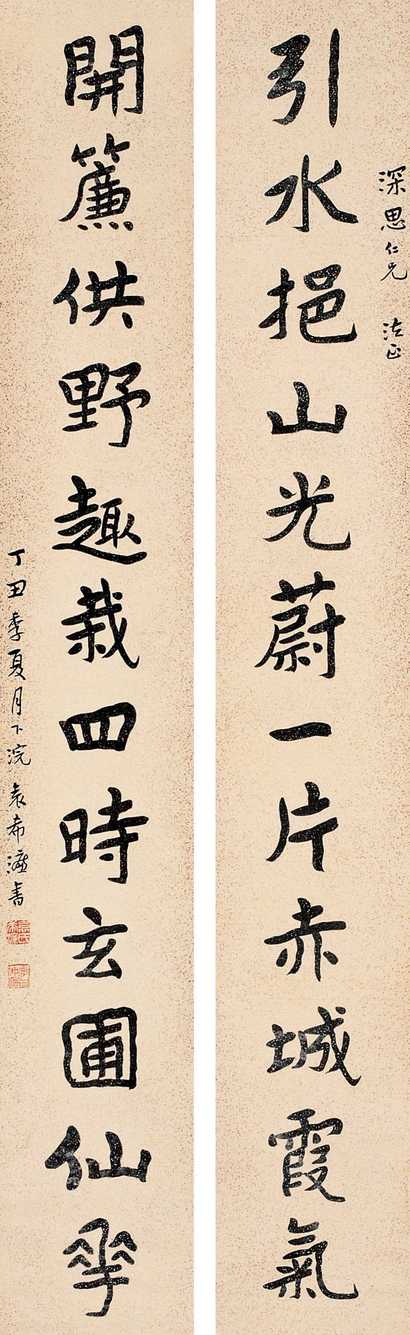 深思仁兄 法正
引水挹山光蔚一片赤城霞氣
開簾供野趣栽四時玄圃仙華
丁丑季夏月下浣 袁希濂書